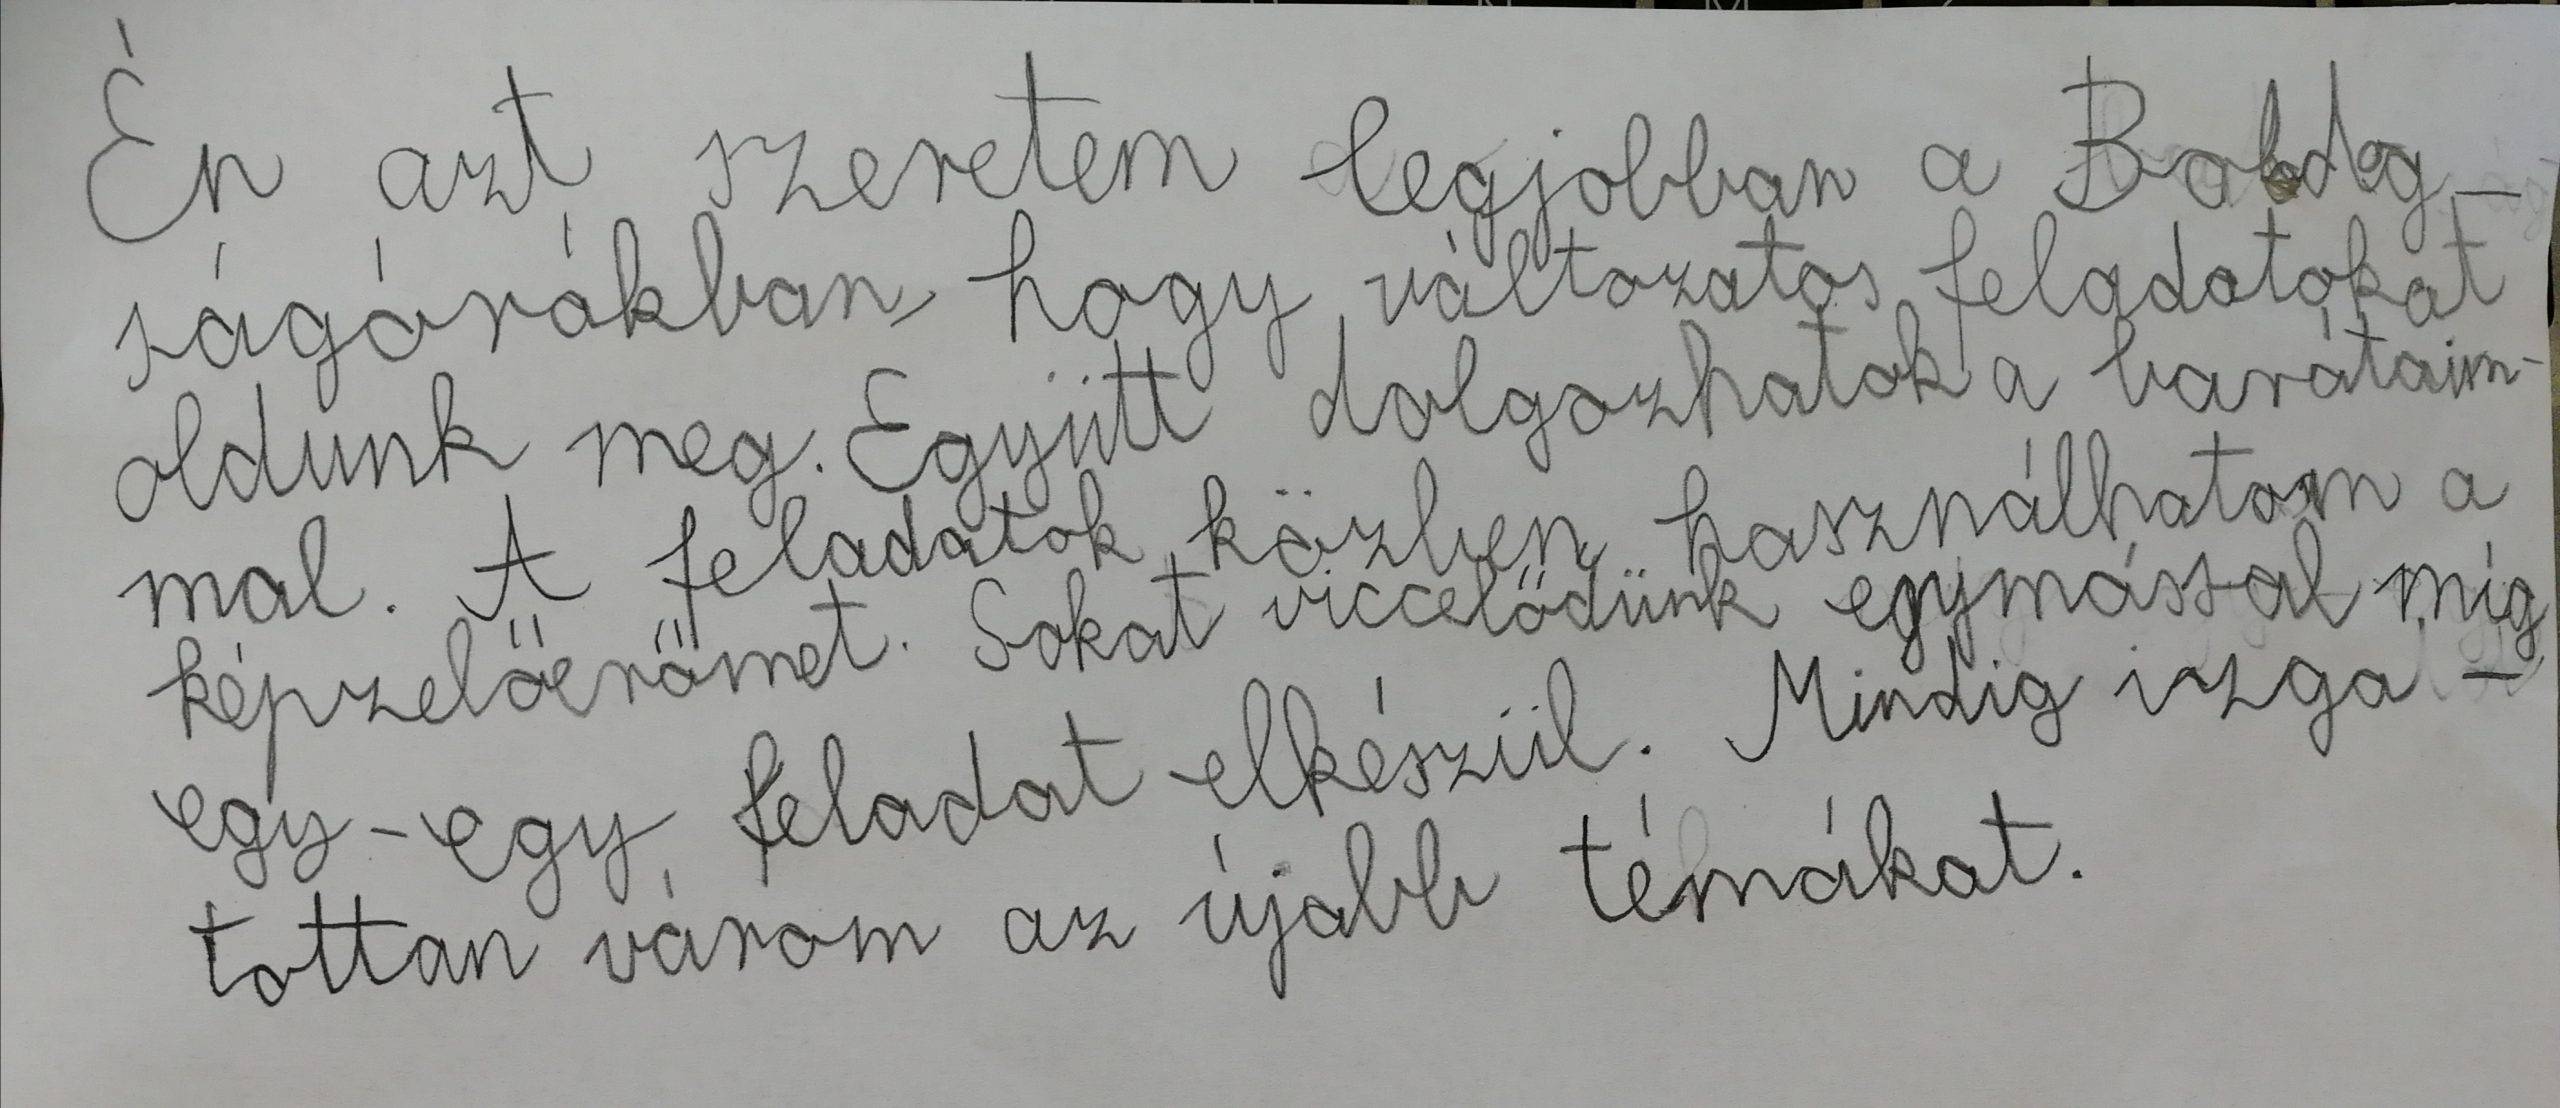 Én azt szeretem legjobban a Boldog-
ságórákban, hogy változatos feladatokat
oldunk meg. Együtt dolgozhatok a barátaim-
mal. A feladatok közben használhatom a
képzelőerőmet. Sokat viccelődünk egymással míg
egy-egy feladat elkészül. Mindig izga-
tottan várom az újabb témákat.